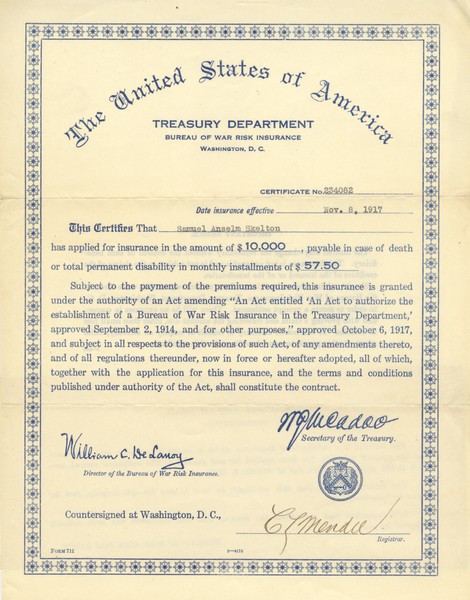 The United States of America
TREASURY DEPARTMENT
BUREAU OF WAR RISK INSURANCE
WASHINGTON, D. C.
CERTIFICATE No. 234082
Date insurance effective Nov. 8, 1917
This Certifies That Samuel Anselm Skelton
has applied for insurance in the amount of $ 10,000, payable in case of death
or total permanent disability in monthly installments of $ 57.50
Subject to the payment of the premiums required, this insurance is granted
under the authority of an Act amending "An Act entitled 'An Act to authorize the
establishment of a Bureau of War Risk Insurance in the Treasury Department,'
approved September 2, 1914, and for other purposes," approved October 6, 1917,
and subject in all respects to the provisions of such Act, of any amendments thereto,
and of all regulations thereunder, now in force or hereafter adopted, all of which,
together with the application for this insurance, and the terms and conditions
published under authority of the Act, shall constitute the contract.
W G McAdoo
Secretary of the Treasury.
William C. De Lanoy
Director of the Bureau of War Risk Insurance.
Countersigned at Washington, D. C.,
Registrar.
FORM 711